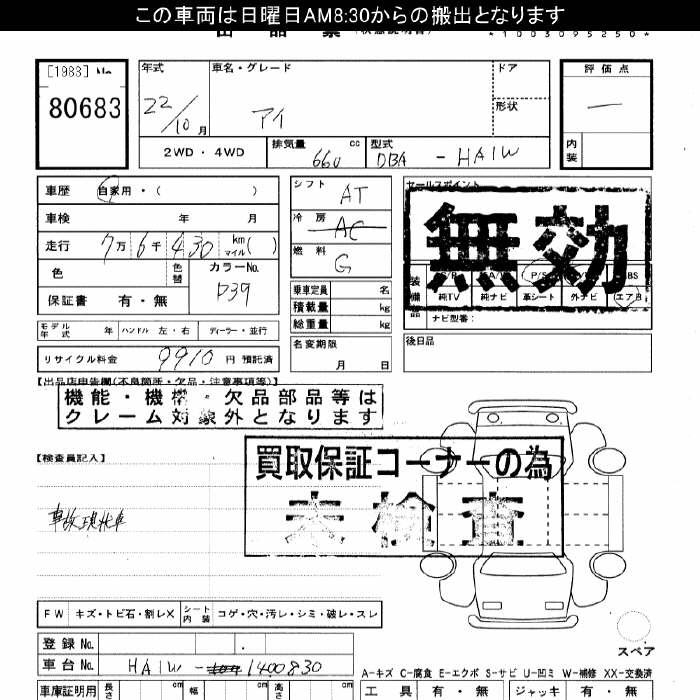 この車両は日曜日AM8:30からの搬出となります
出品票
*1003095250*
[1983] No.
80683
年式
22/10月
車名・グレード
アイ
ドア
形状
評価点
—
内装
2WD・4WD
排気量 660 cc
型式 DBA - HA1W
車歴 自家用・( )
車検 年 月
走行 7万6千430 km マイル( )
色
色替
カラーNo.
D39
保証書 有・無
モデル年式 年 ハンドル 左・右 ディーラー・並行
リサイクル料金 9910 円 預託済
シフト AT
冷房 AC
燃料 G
乗車定員 名
積載量 kg
総重量 kg
名変期限 月 日
セールスポイント
無効
装備品
P/S
ABS
純TV 純ナビ 革シート 外ナビ エアB
ナビ型番:
後日品
【出品店申告欄(不良箇所・欠品・注意事項等)】
機能・機構・欠品部品等は
クレーム対象外となります
【検査員記入】
買取保証コーナーの為
未検査
事故現状車
FW キズ・トビ石・割レX シート内装 コゲ・穴・汚レ・シミ・破レ・スレ
登録No.
車台No. HA1W - 1400830
スペア
A-キズ C-腐食 E-エクボ S-サビ U-凹ミ W-補修 XX-交換済
車庫証明用 長さ cm 幅 cm 高さ cm
工具 有・無 ジャッキ 有・無